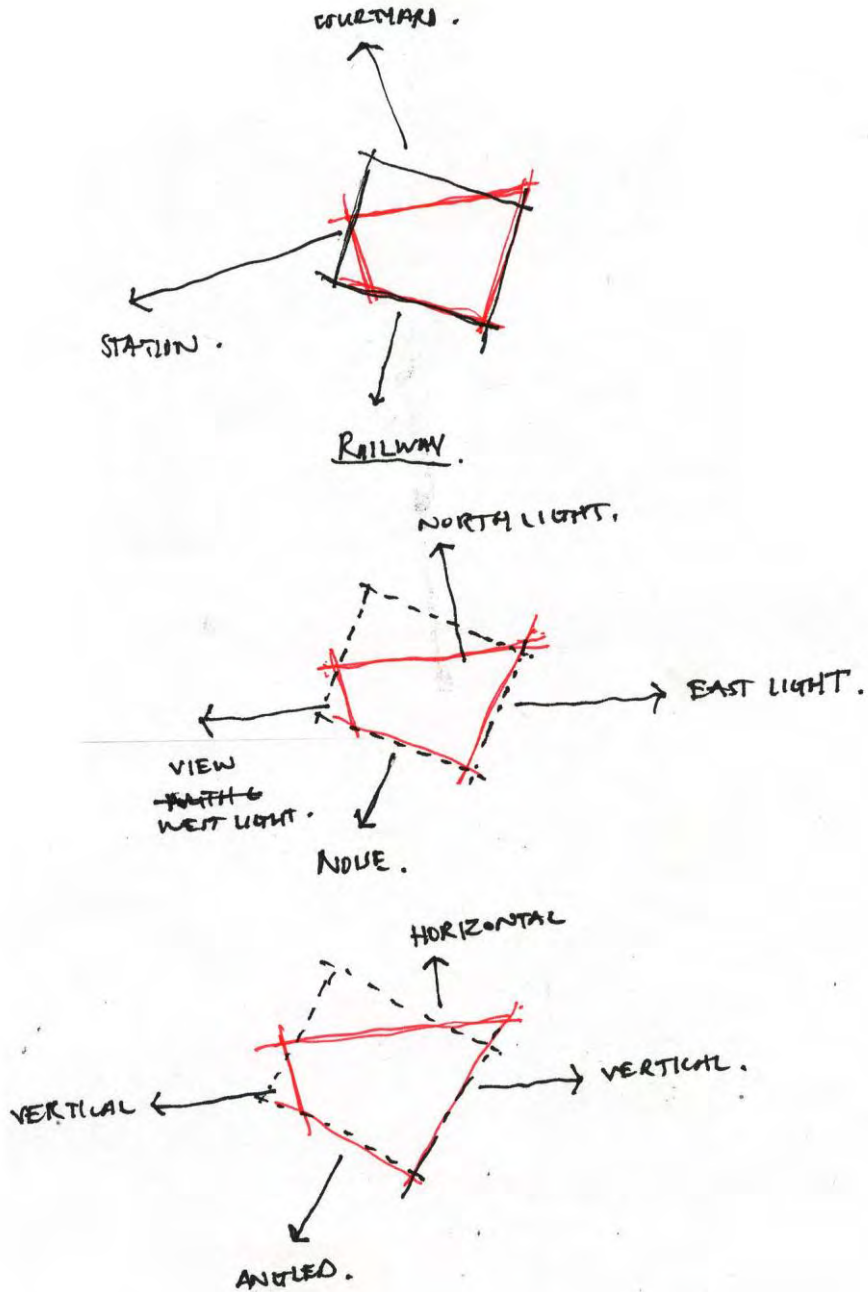 COURTYARD.
STATION.
RAILWAY.
NORTH LIGHT.
EAST LIGHT.
VIEW
WEST LIGHT.
NOISE.
HORIZONTAL
VERTICAL.
VERTICAL
ANGLED.